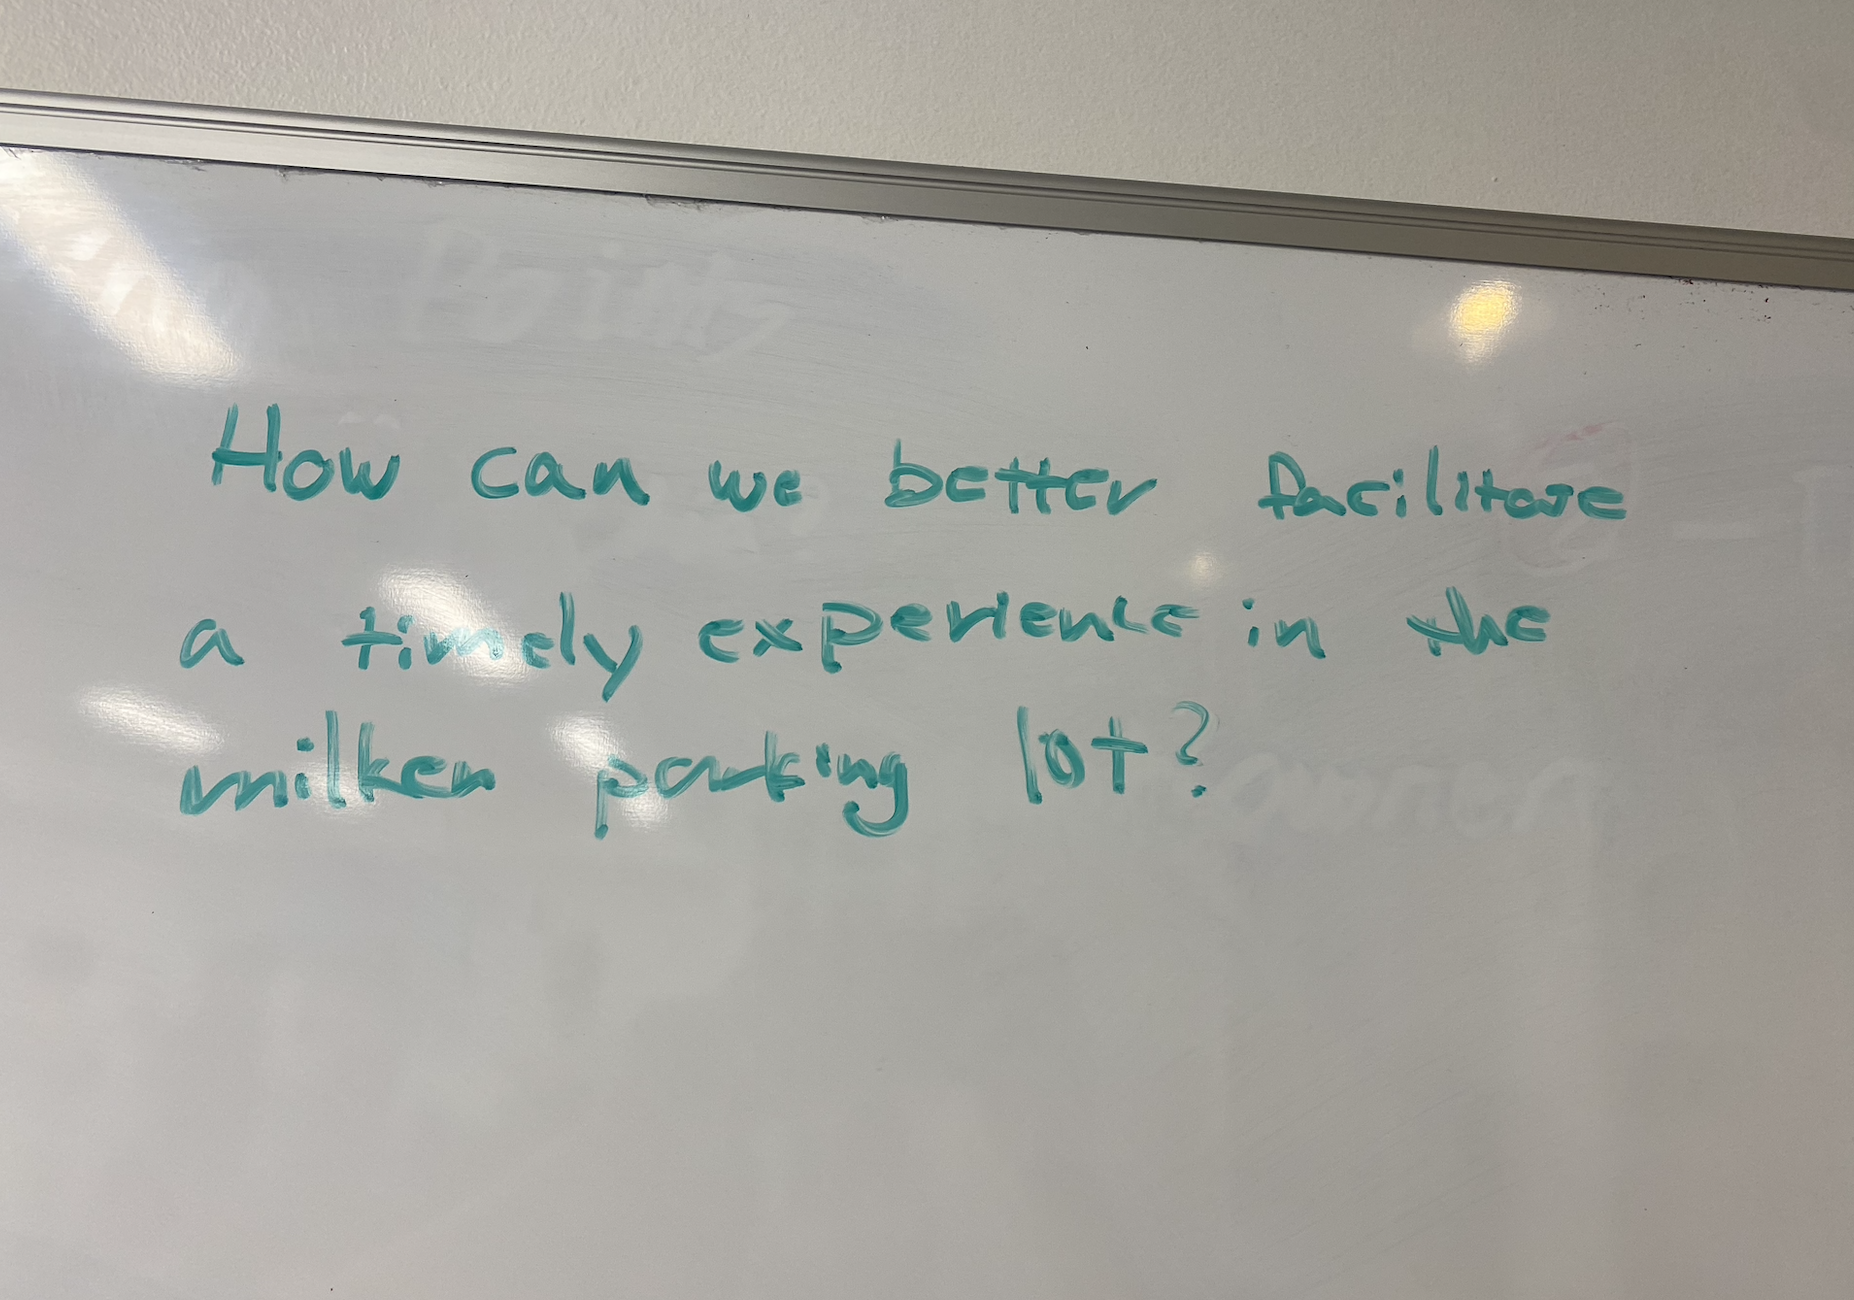 Points
How can we better facilitate
a timely experience in the
milken parking lot?